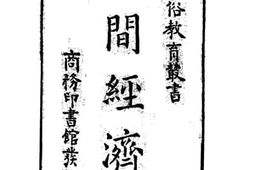 俗教育叢書
間經濟
商務印書館發